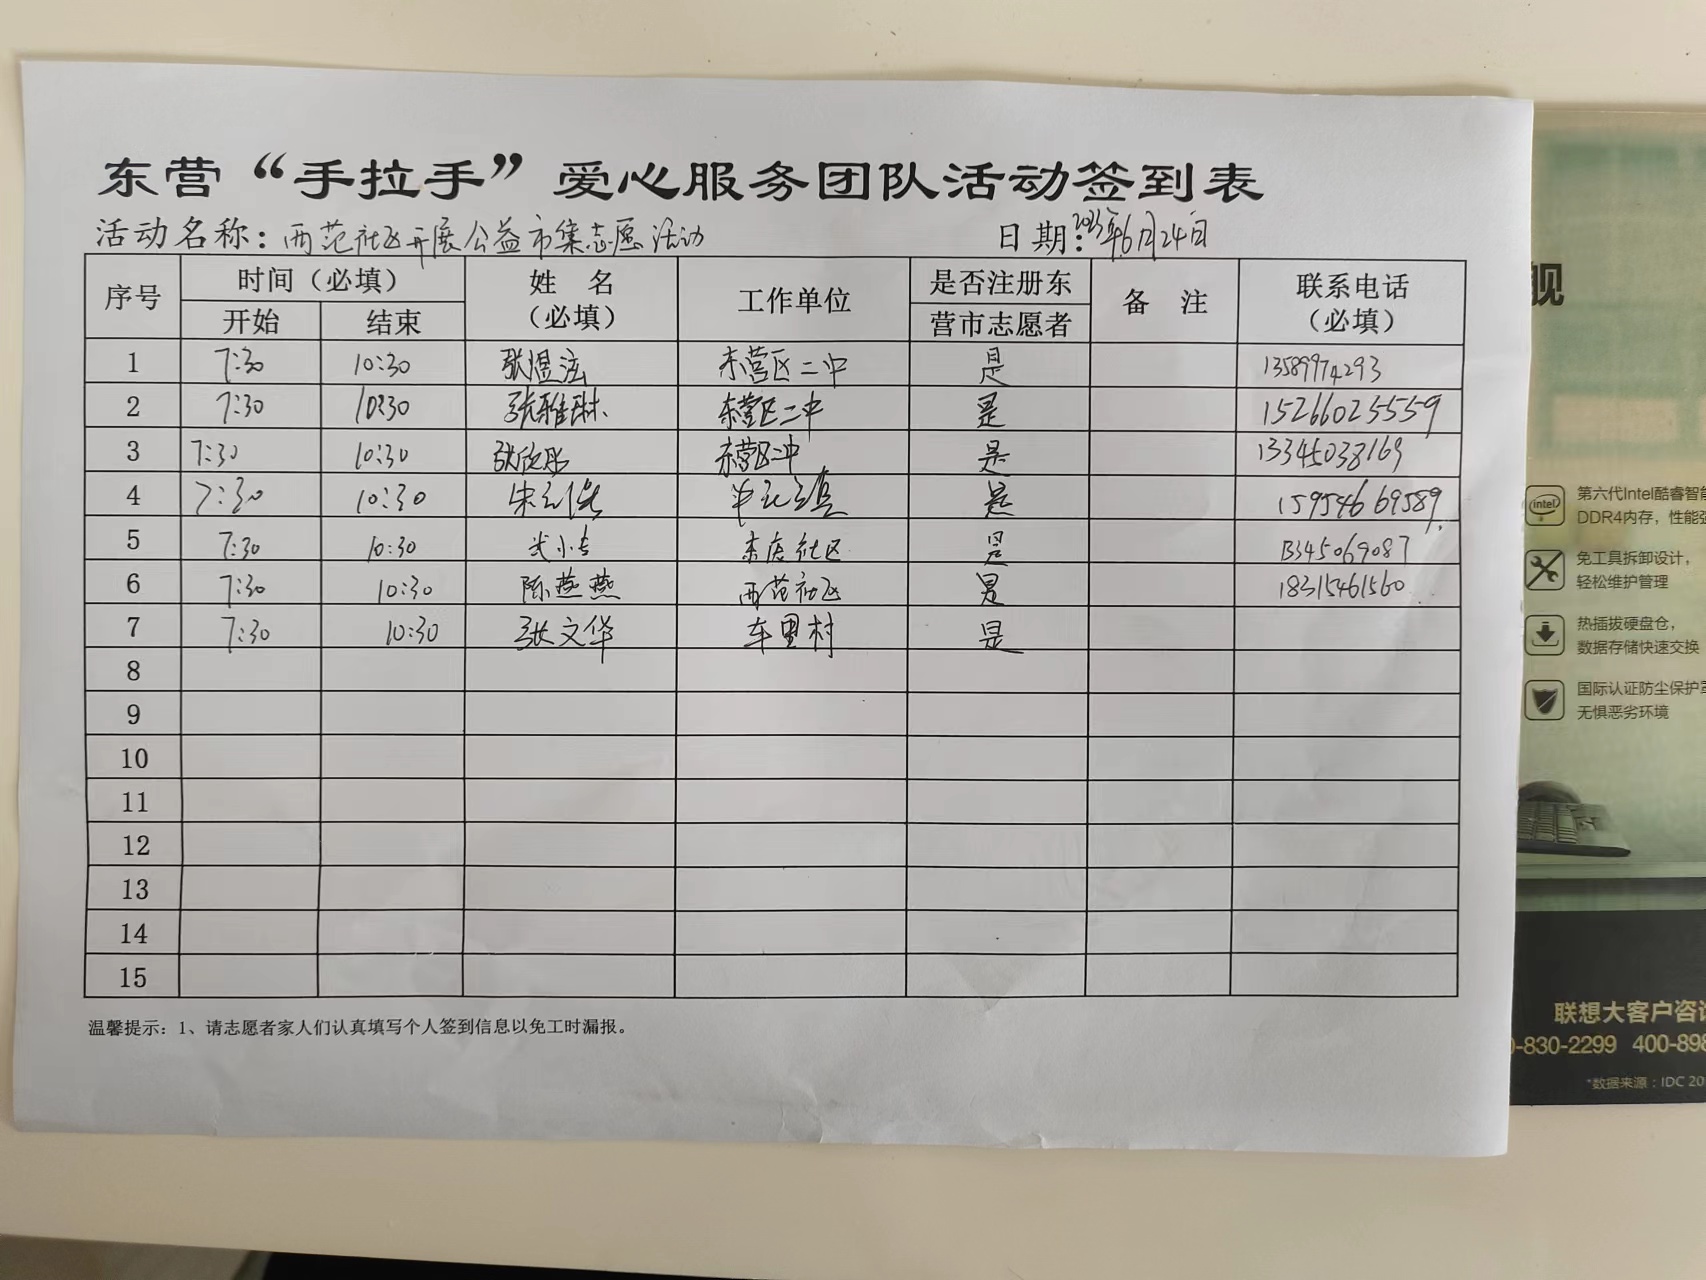 东营“手拉手”爱心服务团队活动签到表
活动名称：西范社区开展公益市集志愿活动 日期：2023年6月24日
序号 时间（必填） 姓名（必填） 工作单位 是否注册东营市志愿者 备注 联系电话（必填）
开始 结束
1 7:30 10:30 张煜泫 东营区二中 是 13589974293
2 7:30 10:30 张雅琳 东营区二中 是 15266025559
3 7:30 10:30 张欣彤 东营区二中 是 13345038169
4 7:30 10:30 宋 是 15954669589
5 7:30 10:30 社区 是 13345069087
6 7:30 10:30 陈燕燕 西范社区 是 18315461560
7 7:30 10:30 张文华 车里村 是
8
9
10
11
12
13
14
15
温馨提示：1、请志愿者家人们认真填写个人签到信息以免工时漏报。
舰
intel
第六代Intel酷睿智能
DDR4内存，性能强
免工具拆卸设计，
轻松维护管理
热插拔硬盘仓，
数据存储快速交换
国际认证防尘保护罩
无惧恶劣环境
联想大客户咨询
0-830-2299 400-898
*数据来源：IDC 20